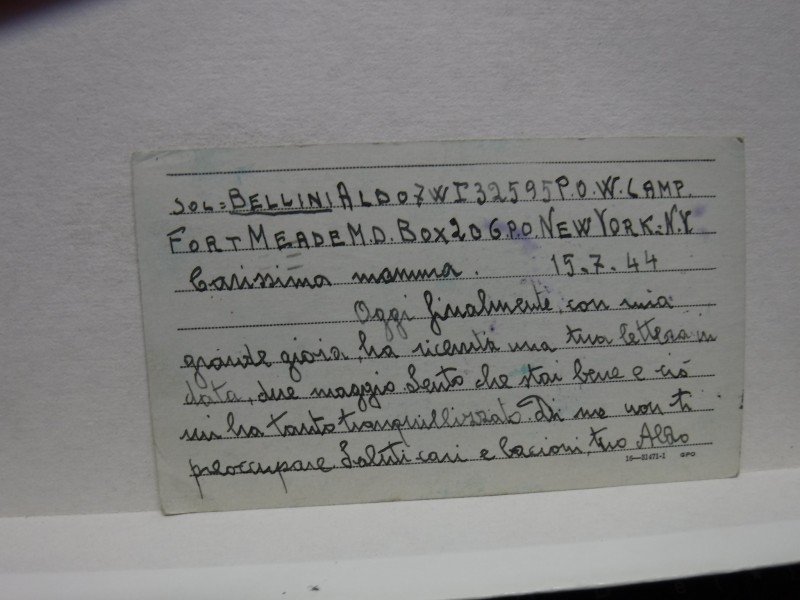 SOL= BELLINI ALDO 7WI32595 P.O.W. CAMP.
FORT MEADE M.D. BOX 20 G.P.O. NEW YORK. N.Y
Carissima mamma. 15.7.44
Oggi finalmente, con mia
grande gioia, ha ricevuta una tua lettera in
data, due maggio. Sento che stai bene e ciò
mi ha tanto tranquillizzato. Di me non ti
preoccupare. Saluti cari e bacioni, tuo Aldo
16—31471-1 GPO